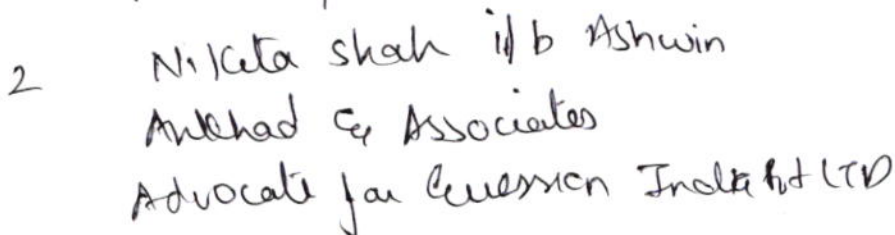 2 Nikita Shah i/b Ashwin
Ankhad & Associates
Advocate for India Pvt LTD